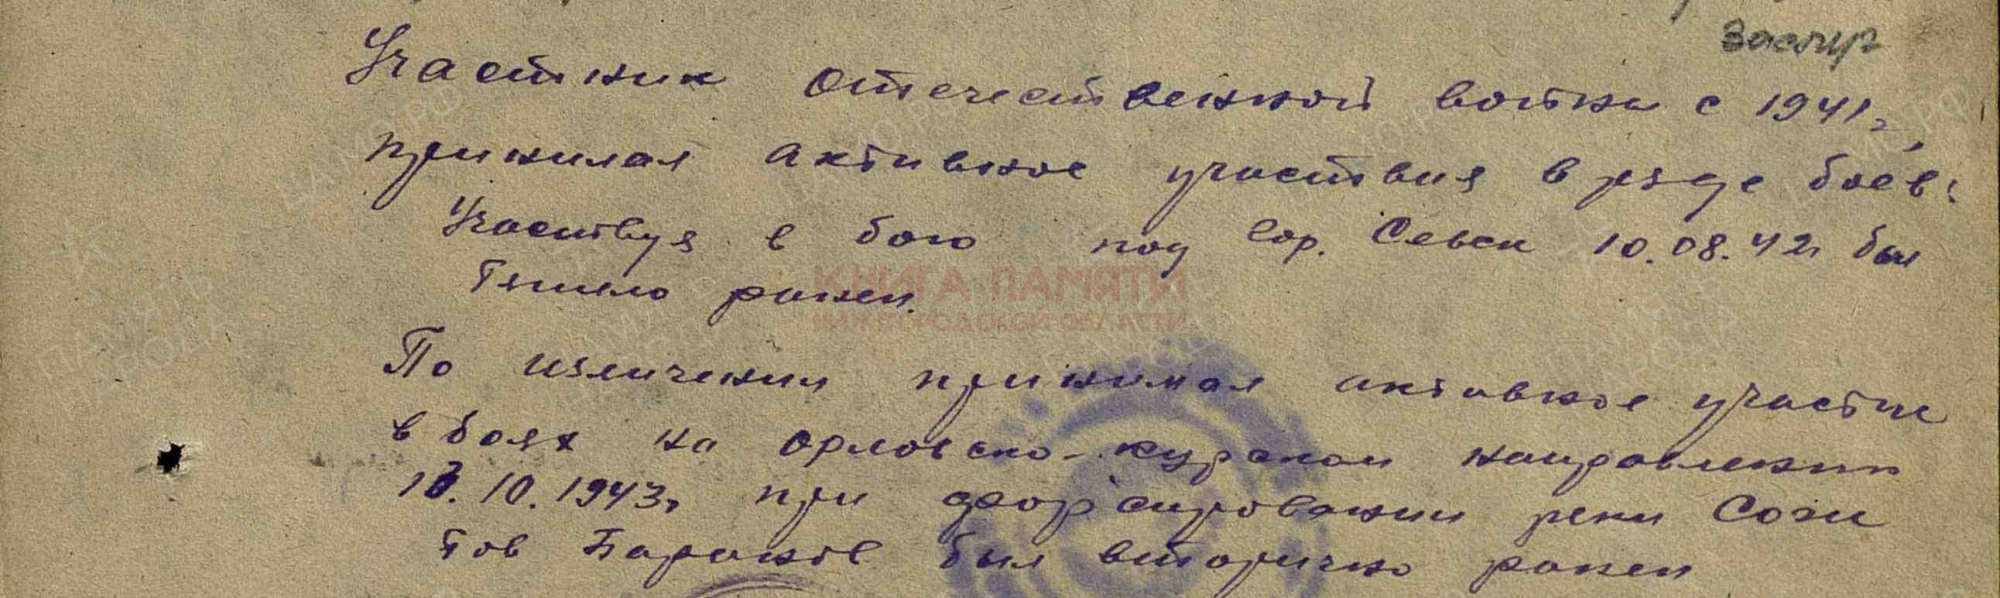 заслуг
Участник отечественной войны с 1941г,
принимал активное участвия в ряде боёв.
Участвуя в бою под гор. Севск 10.08.42г был
тяжело ранен.
КНИГА ПАМЯТИ
НИЖЕГОРОДСКОЙ ОБЛАСТИ
По излечении принимал активное участие
в боях на орловско-курском направлении
10.1943г при форсировании реки Сож
тов Баранов был вторично ранен